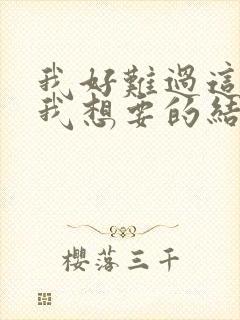 我好難過這
我想要的結
櫻落三千